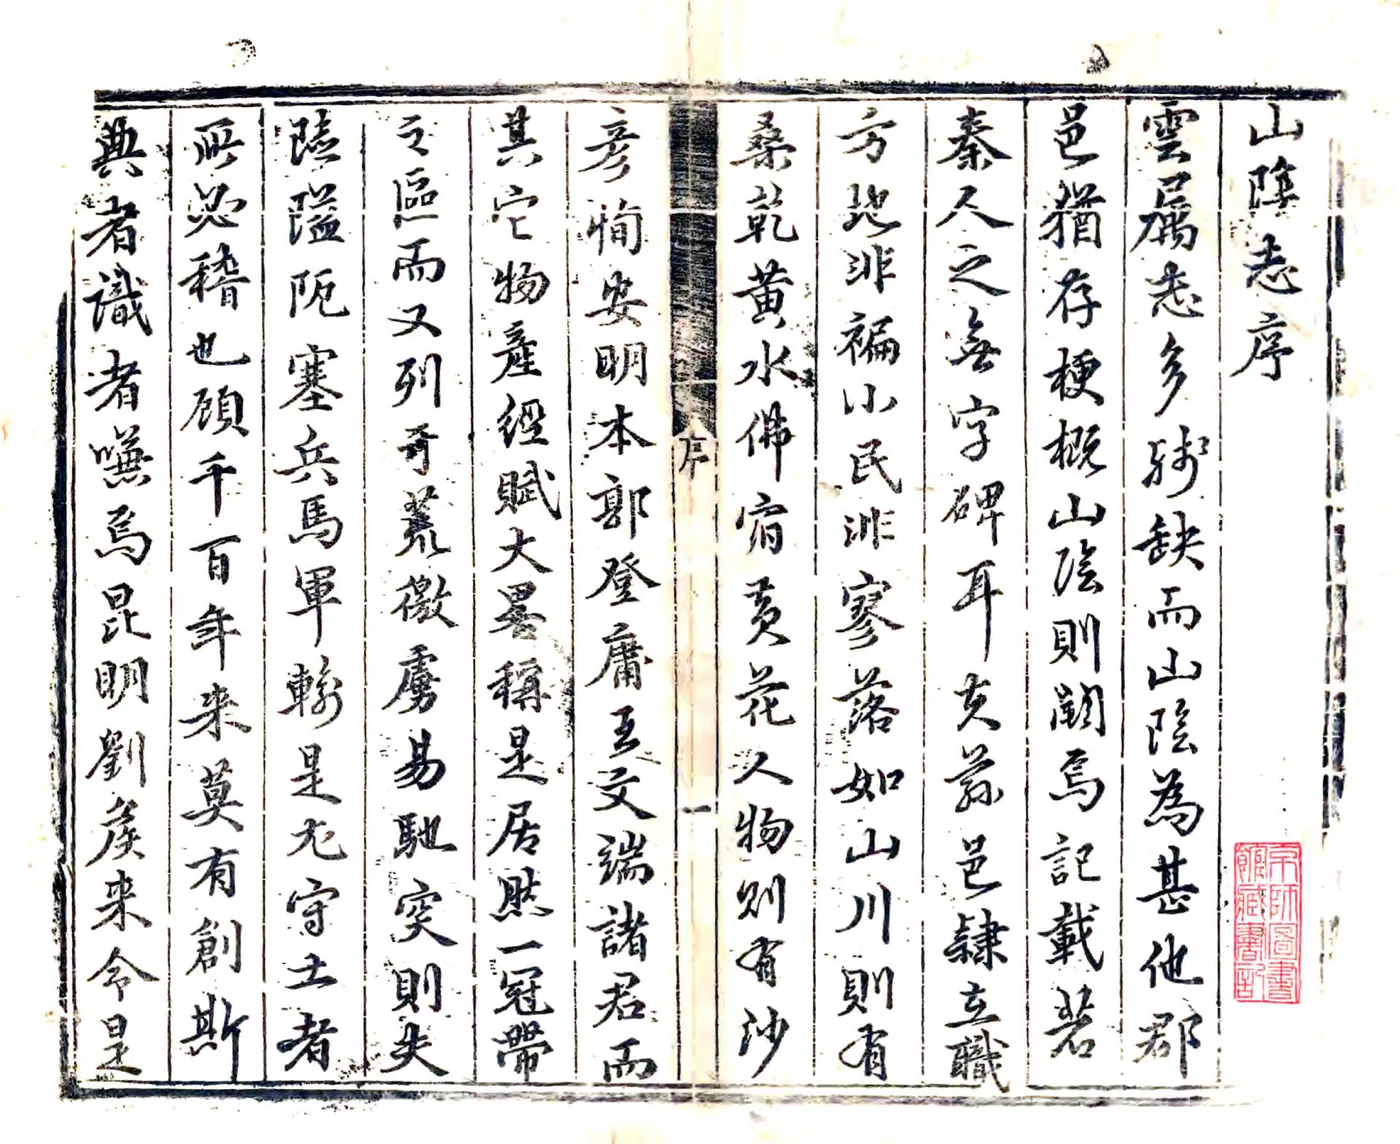 山陰志序
雲属志多殘缺而山陰為甚他郡
邑猶存梗概山陰則闕焉記載若
秦人之無字碑耳夫蕞邑隸立職
方地非褊小民非寥落如山川則有
桑乾黃水佛宿黃花人物則有沙
序
一
彥恂安明本郭登庸王文端諸君而
其它物產經賦大畧稱是居然一冠帶
之區而又列于荒徼虜易馳突則夫
陸隘阨塞兵馬軍輸是尤守土者
所必稽也顧千百年来莫有創斯
典者識者嘸焉昆明劉侯来令是
京師圖書
館藏書記